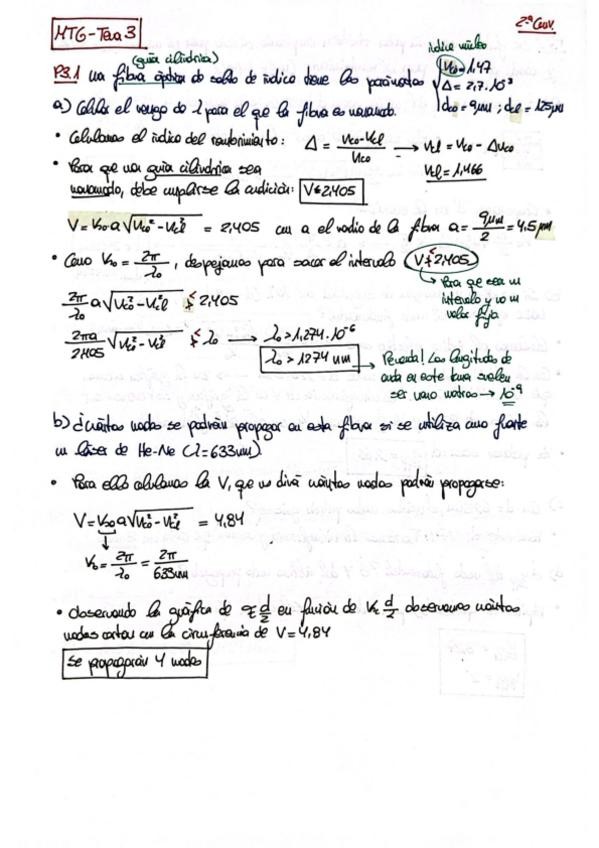 MTG-Tema 3
2ª Conv.
(guía cilíndrica)
índice núcleo
P3.1 Una fibra óptica de salto de índice tiene los parámetros nco = 1,47
Δ = 2,7·10⁻³
dco = 9μm ; dcl = 125μm
a) Calcular el rango de λ para el que la fibra es monomodo.
• Calculamos el índice del recubrimiento: Δ = (nco - ncl)/nco → ncl = nco - Δnco
ncl = 1,466
• Para que una guía cilíndrica sea
monomodo, debe cumplirse la condición: V<2,405
V = k₀ a √(nco² - ncl²) = 2,405 con a el radio de la fibra a = 9μm/2 = 4,5μm
• Como k₀ = 2π/λ₀, despejamos para sacar el intervalo V<2,405
→ Para que sea un
intervalo y no un
valor fijo
2π/λ₀ a √(nco² - ncl²) < 2,405
2πa/2,405 √(nco² - ncl²) < λ₀ → λ₀ > 1,274·10⁻⁶
λ₀ > 1274 nm
→ Recuerda! Las longitudes de
onda en este tema suelen
ser nano metros → 10⁻⁹
b) ¿Cuántos modos se podrán propagar en esta fibra si se utiliza como fuente
un láser de He-Ne (λ=633nm).
• Para ello calculamos la V, que nos dirá cuántos modos podrán propagarse:
V = k₀ a √(nco² - ncl²) = 4,84
k₀ = 2π/λ₀ = 2π/633nm
• Observando la gráfica de d/2 en función de k d/2 observamos cuántos
modos cortan con la circunferencia de V = 4,84
Se propagarán 4 modos